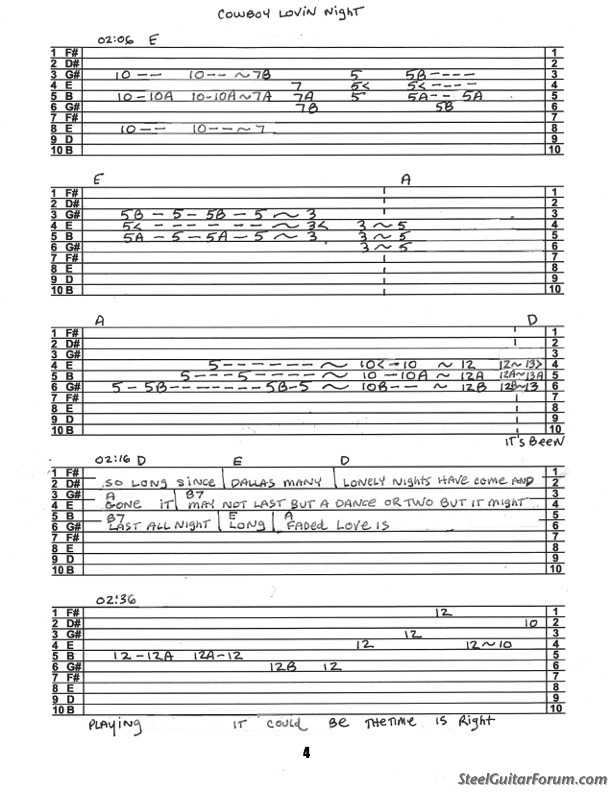 COWBOY LOVIN Night
02:06 E
1 F# 1
2 D# 2
3 G# 10 -- 10 -- ~ 7B 5 5B ---- 3
4 E 7 5< 5< ---- 4
5 B 10 - 10A 10-10A ~ 7A 7A 5 5A -- 5A 5
6 G# 7B 5B 6
7 F# 7
8 E 10 -- 10 --- ~ 7 8
9 D 9
10 B 10
E A
1 F# 1
2 D# 2
3 G# 5B - 5 - 5B - 5 ~ 3 3
4 E 5< - - - - - - ~ 3< 3 ~ 5 4
5 B 5A - 5 - 5A - 5 ~ 3 3 ~ 5 5
6 G# 3 ~ 5 6
7 F# 7
8 E 8
9 D 9
10 B 10
A D
1 F# 1
2 D# 2
3 G# 3
4 E 5 ------- ~ 10< - 10 ~ 12 12 ~ 13> 4
5 B 5 ---- 5 ----- ~ 10 - 10A ~ 12A 12A~13A 5
6 G# 5 - 5B ------- 5B - 5 ~ 10B -- ~ 12B 12B~13 6
7 F# 7
8 E 8
9 D 9
10 B 10
IT'S BEEN
02:16 D E D
1 F# 1
2 D# SO LONG SINCE | DALLAS MANY | LONELY NIGHTS HAVE COME AND 2
3 G# A B7 3
4 E GONE IT | MAY NOT LAST BUT A DANCE OR TWO BUT IT Might .. 4
5 B B7 E A 5
6 G# LAST ALL NIGHT | LONG | FADED LOVE IS 6
7 F# 7
8 E 8
9 D 9
10 B 10
02:36
1 F# 12 1
2 D# 10 2
3 G# 12 3
4 E 12 12 ~ 10 4
5 B 12 - 12A 12A - 12 5
6 G# 12B 12 6
7 F# 7
8 E 8
9 D 9
10 B 10
PLAYING IT COULD BE THE TIME IS Right
4
SteelGuitarForum.com